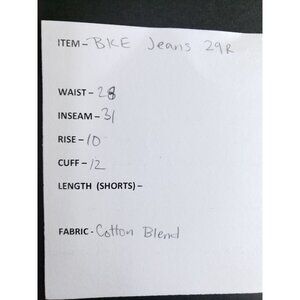 ITEM – BKE Jeans 29R
WAIST – 28
INSEAM – 31
RISE – 10
CUFF – 12
LENGTH (SHORTS) –
FABRIC - Cotton Blend